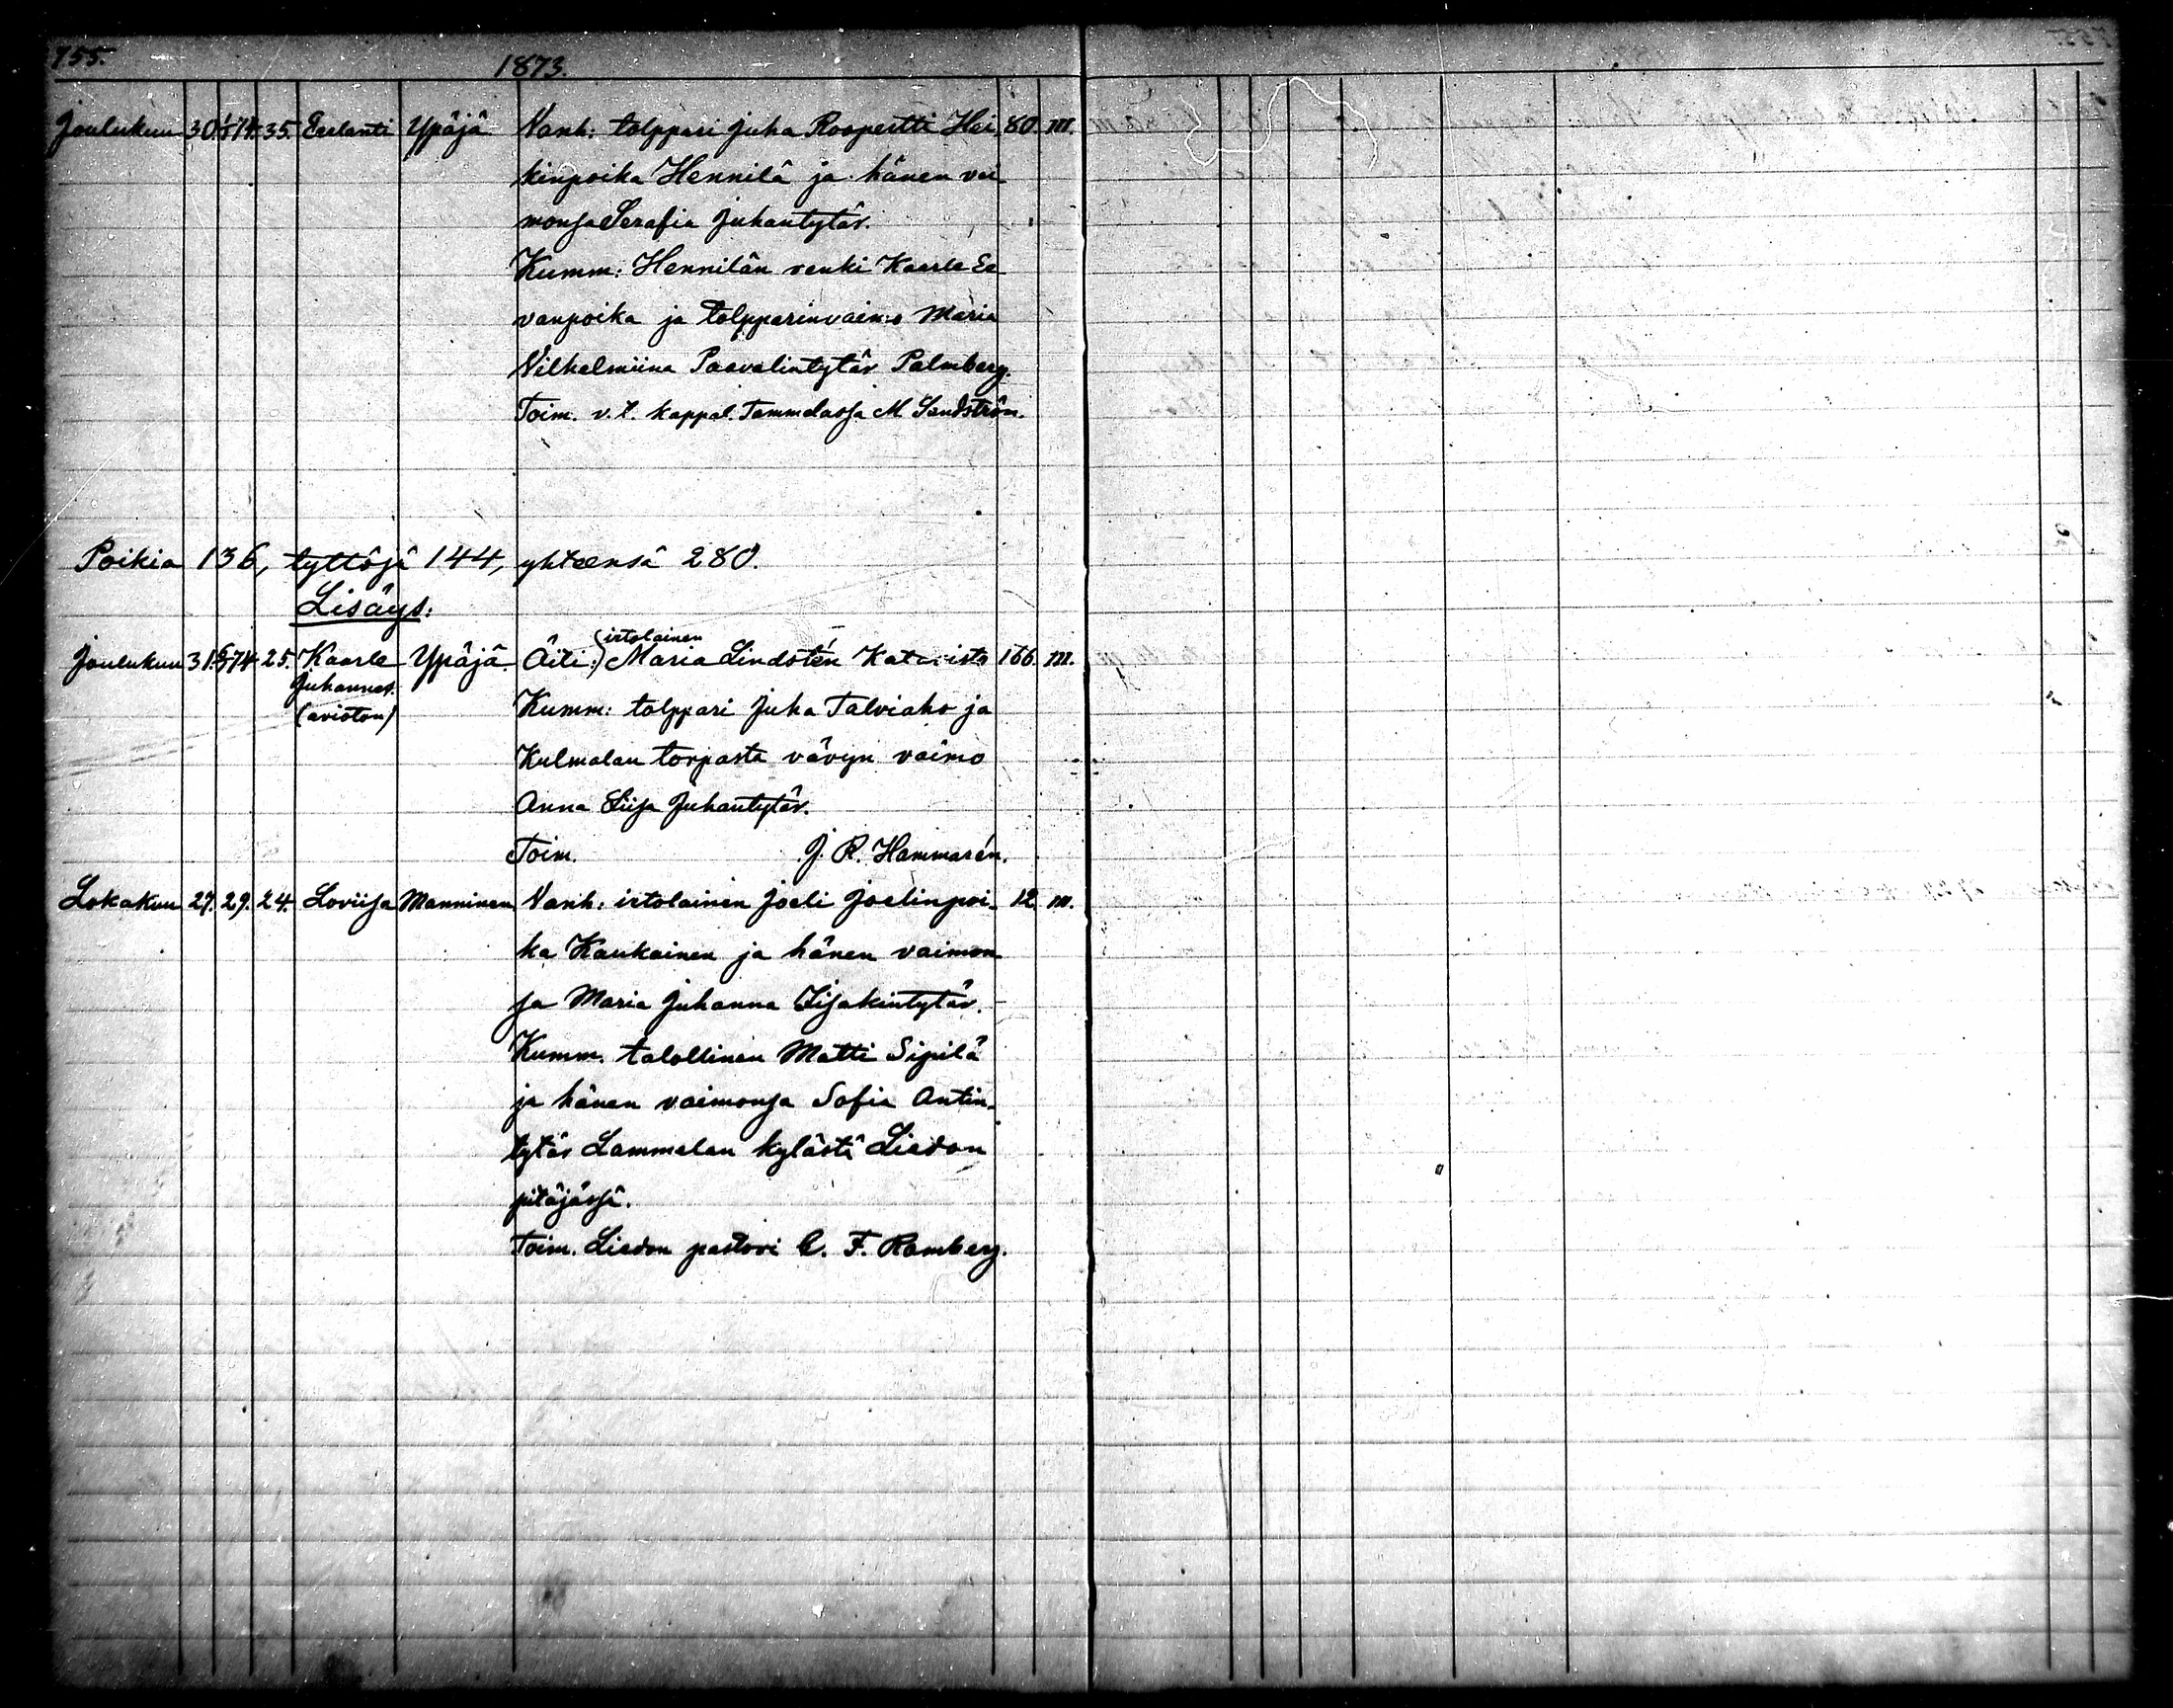 755.
1873.
Joulukuu 30. 74. 35. Eerlanti Ypäjä Vanh: tolppari Juha Roopertti Hei 80. m.
kinpoika Hennilä ja hänen vai
monsa Serafia Juhantytär.
Kumm: Hennilän renki Kaarle Ee
vanpoika ja tolpparinvaimo Maria
Vilhelmiina Paavalintytär Palmberg.
Toim. v.t. kappal. Tammelassa M Sandström.
Poikia 136, tyttöjä 144, yhteensä 280.
Lisäys:
irtolainen
Joulukuu 31. 74 25. Kaarle Ypäjä Äiti: Maria Lindstén 166. m.
Juhannes.
(avioton) Kumm: tolppari Juha Talviaho ja
Kulmalan torpasta vävyn vaimo
Anna Liisa Juhantytär.
Toim. J. R. Hammarén.
Lokakuu 27. 29. 24. Loviisa Manninen Vanh: irtolainen Joeli Joelinpoi- 12 m.
ka Kaukainen ja hänen vaimon-
sa Maria Juhanna Iisakintytär.
Kumm. talollinen Matti Sipilä
ja hänen vaimonsa Sofia Antin-
tytär Lammelan kylästä Liedon
pitäjässä.
Toim. Liedon pastori C. F. Ramberg.